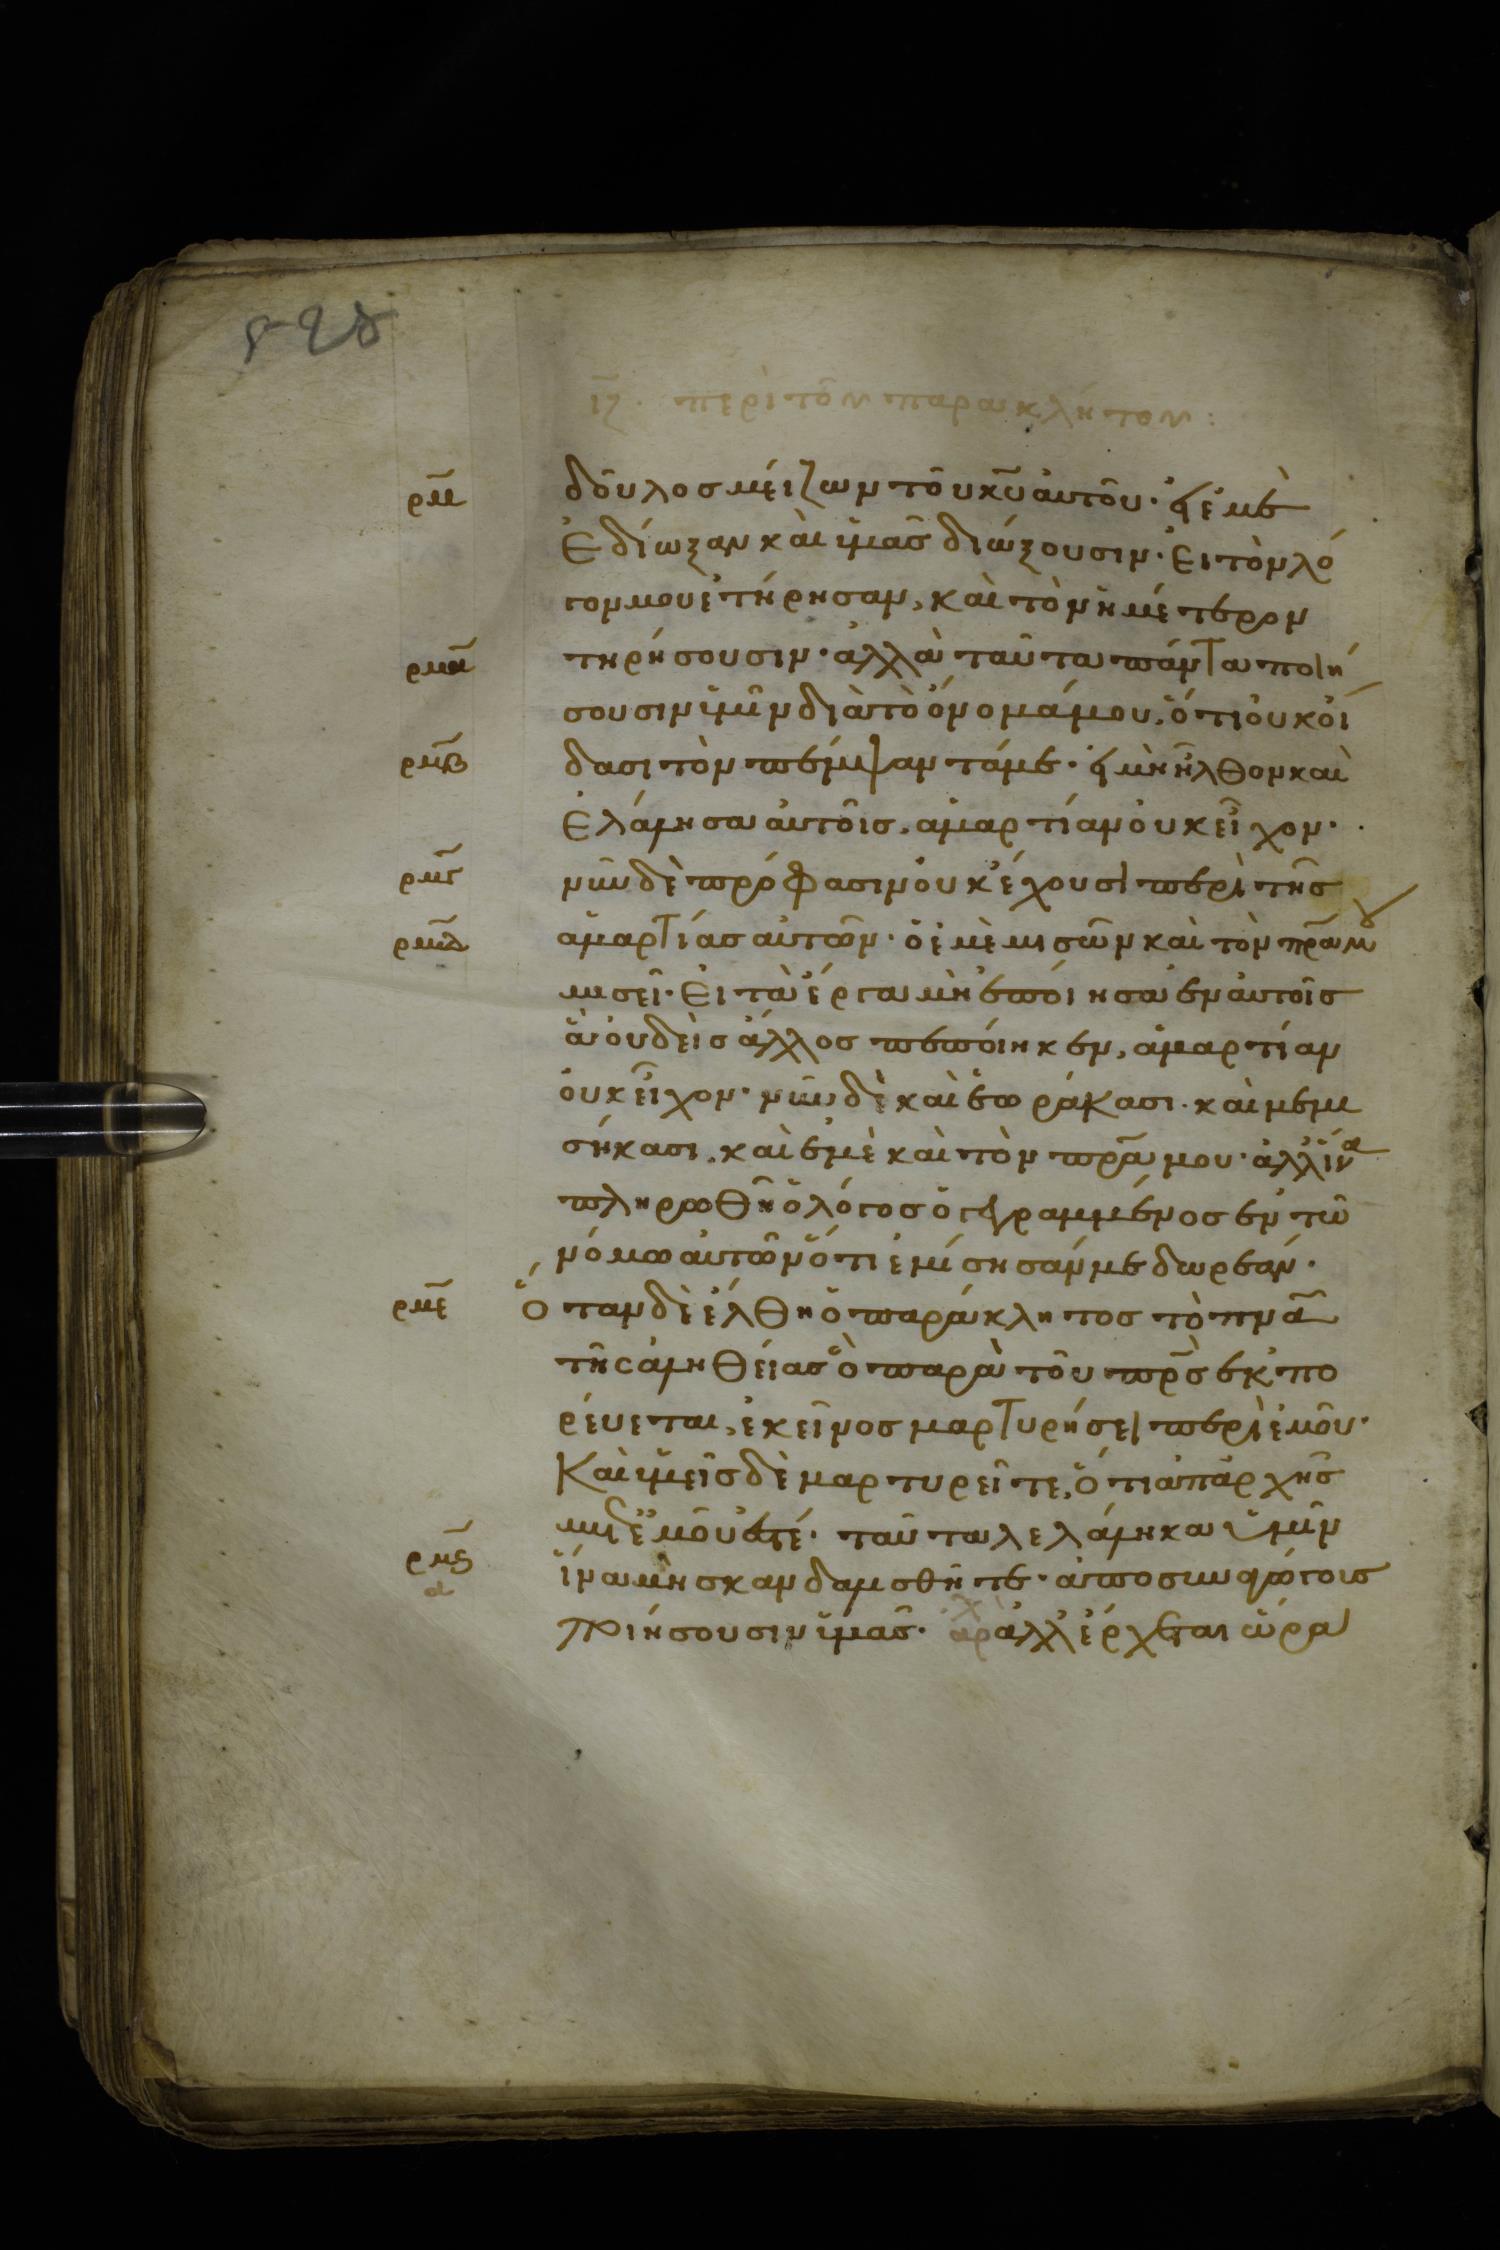 ιζ. περὶ τοῦ παρακλήτου:
ρμ δοῦλος μείζων τοῦ κῡ αὐτοῦ· εἰ ἐμὲ
ἐδίωξαν καὶ ὑμᾶς διώξουσιν· Ει τὸν λό
γον μου ἐτήρησαν, καὶ τὸν ἡμέτερον
ρμα τηρήσουσιν· ἀλλὰ ταῦτα πάντα ποιή
σουσιν ὑμῖν διὰ τὸ ὄνομά μου, ὅτι οὐκ οἴ
ρμβ δασι τὸν πέμψαντά με· εἰ μὴ ἦλθον καὶ
ἐλάλησα αὐτοῖς, ἁμαρτίαν οὐκ εἶχον·
ρμγ νῦν δὲ πρόφασιν οὐκ ἔχουσι περὶ τῆς
ρμδ ἁμαρτίας αὐτῶν· ὁ ἐμὲ μισῶν καὶ τὸν πρ̄α μου
μισεῖ· Εἰ τὰ ἔργα μὴ ἐποίησα ἐν αὐτοῖς
ἃ οὐδεὶς ἄλλος πεποίηκεν, ἁμαρτίαν
οὐκ εἶχον· νῦν δὲ καὶ ἑωράκασι· καὶ μεμι
σήκασι, καὶ ἐμὲ καὶ τὸν πρ̄α μου· ἀλλ' ἵνα
πληρωθῆ ὁ λόγος ὁ γεγραμμένος ἐν τῶ
νόμω αὐτῶν ὅτι ἐμίσησάν με δωρεάν·
ρμε Ὅταν δὲ ἔλθη ὁ παράκλητος τὸ πνᾱ
τῆς ἀληθείας ὃ παρὰ τοῦ πρ̄ς ἐκπο
ρεύεται, ἐκεῖνος μαρτυρήσει περὶ ἐμοῦ·
Καὶ ὑμεῖς δὲ μαρτυρεῖτε, ὅτι ἀπ' ἀρχῆς
μετ' ἐμοῦ ἐστέ· ταῦτα λελάληκα ὑμῖν
ρμϛ ἵνα μὴ σκανδαλισθῆτε· ἀποσυναγώγους
ποιήσουσιν ὑμᾶς· ἀρχ ἀλλ' ἔρχεται ὥρα